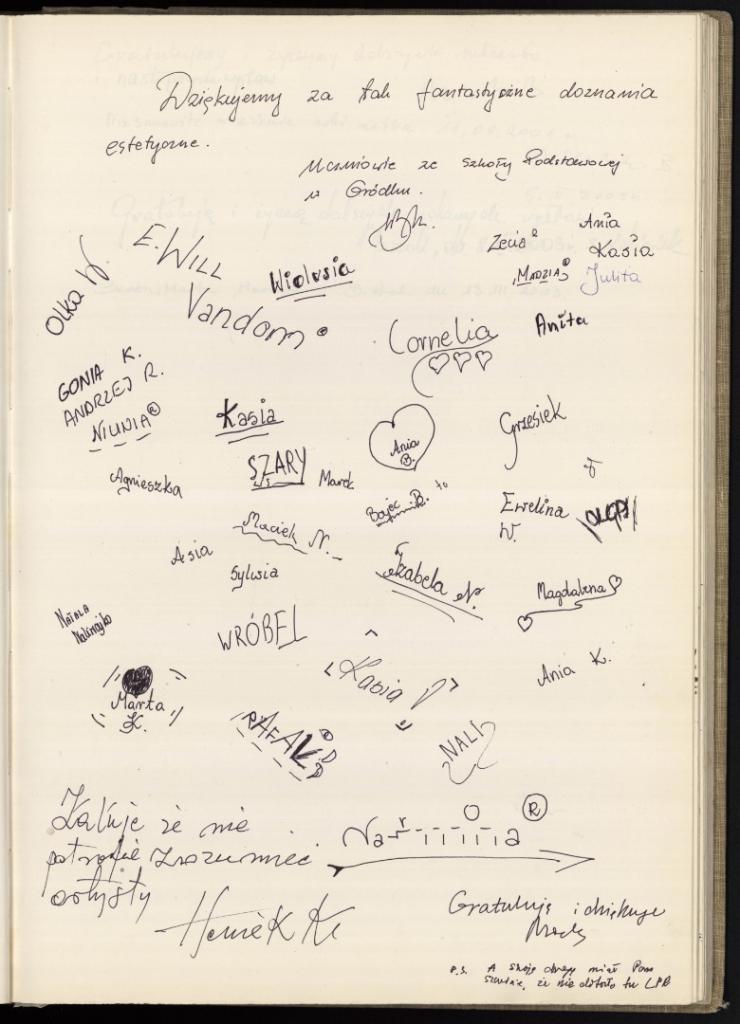 Dziękujemy za tak fantastyczne doznania
estetyczne.
Uczniowie ze szkoły Podstawowej
w Gródku.
Zeus
Ania
Kasia
MADZIA
Julita
Olka W.
E. WILL
Vandom
Wiolusia
Cornelia
Anita
GONIA K.
ANDRZEJ R.
NIUNIA ®
Kasia
Ania
B.
Grzesiek
Agnieszka
SZARY
Marek
Bajec B. to
Ewelina
W.
Maciek N.
Asia
Sylwia
Izabela N.
Magdalena
Natala
WRÓBEL
Kasia
Ania K.
Marta
K.
RAFAŁ
NALI
Żałuję że nie
potrafię zrozumieć
artysty
Heniek K
®
Gratuluję i dziękuję
P.S. A swoją drogą miał Pan
że nie dotarło tu LPR